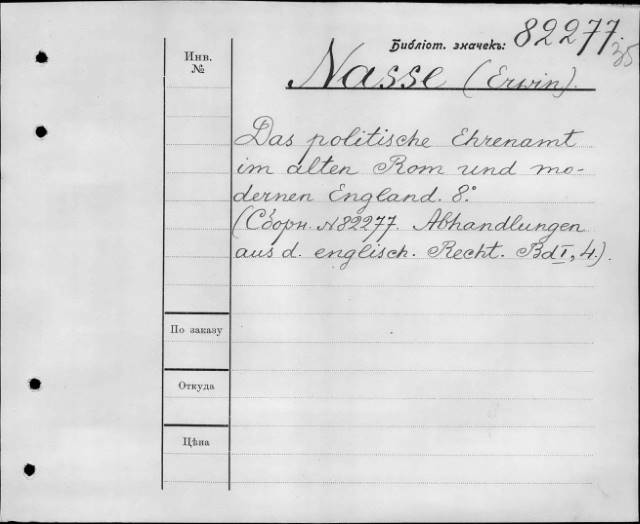 Библіот. значекъ: 82277.
35
Инв.
№
Nasse (Erwin).
Das politische Ehrenamt
im alten Rom und mo-
dernen England. 8.°
(Сборн. N 82277. Abhandlungen
aus d. englisch. Recht. Bd I, 4.).
По заказу
Откуда
Цѣна